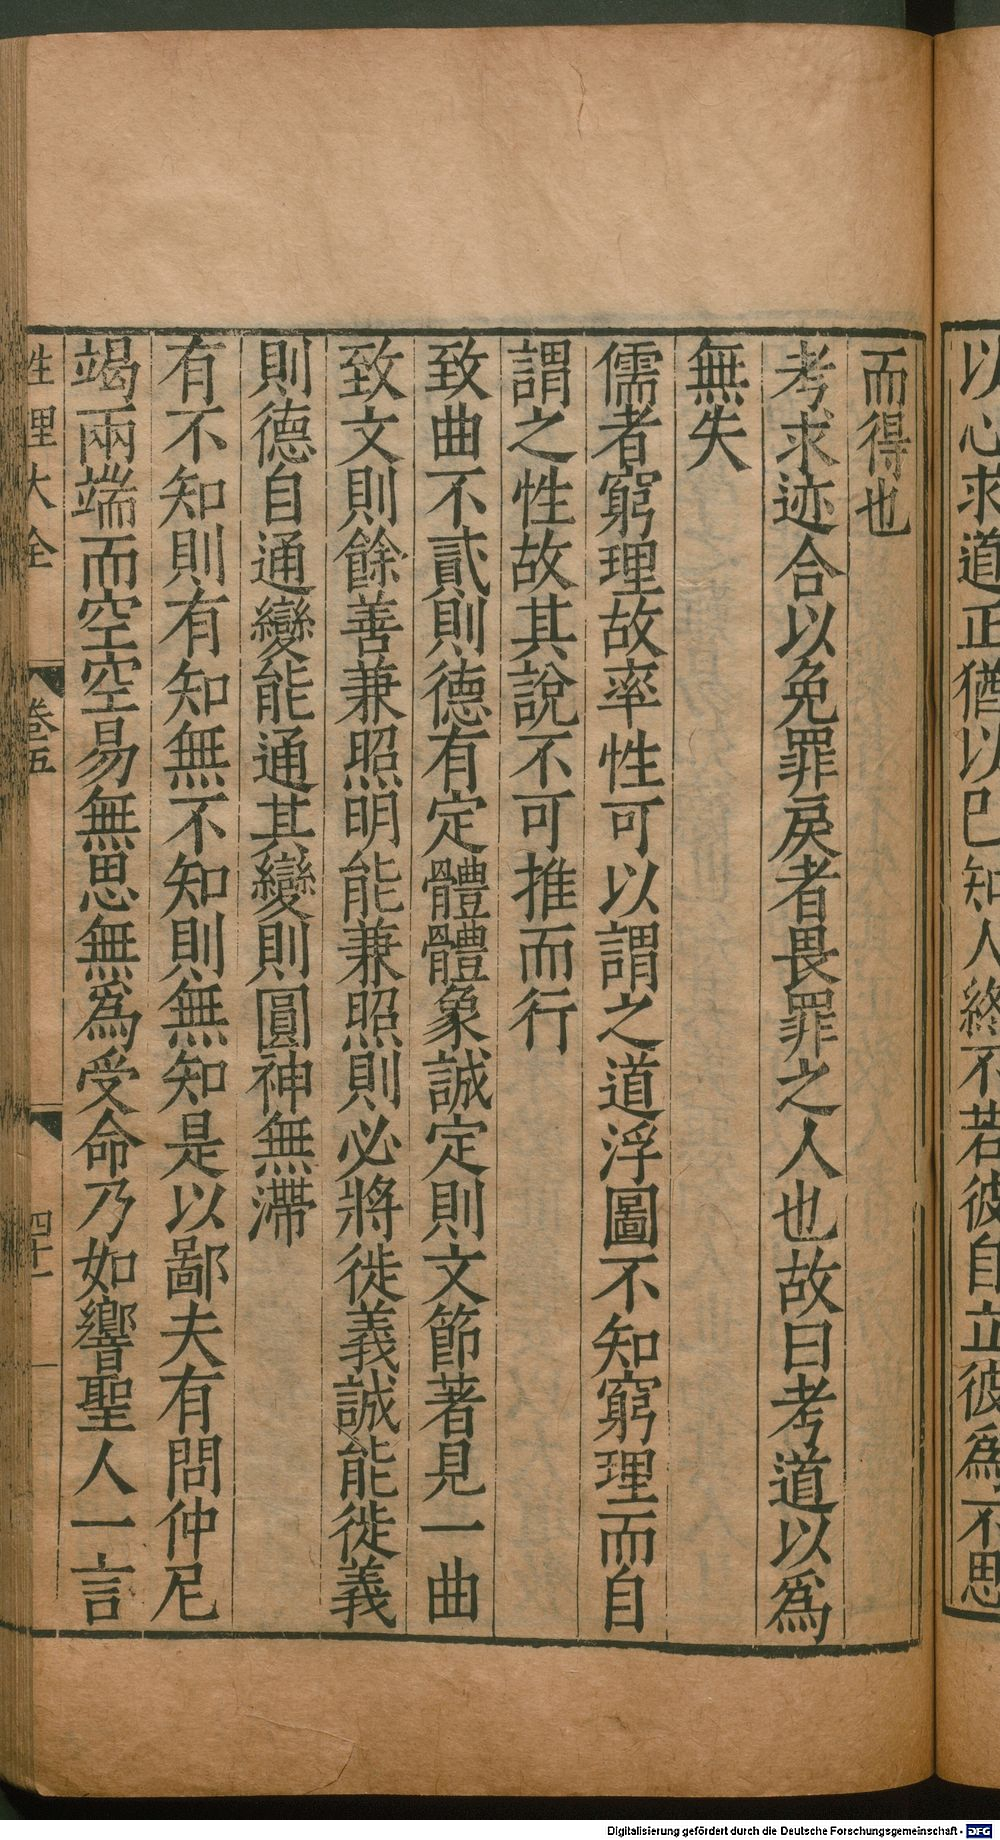 以心求道正猶以巳知人終不若彼自立彼爲不思
而得也
考求迹合以免罪戾者畏罪之人也故曰考道以爲
無失
儒者窮理故率性可以謂之道浮圖不知窮理而自
謂之性故其說不可推而行
致曲不貳則德有定體體象誠定則文節著見一曲
致文則餘善兼照明能兼照則必將徙義誠能徙義
則德自通變能通其變則圓神無滯
有不知則有知無不知則無知是以鄙夫有問仲尼
竭兩端而空空易無思無爲受命乃如響聖人一言
性理大全 卷五 四十一
Digitalisierung gefördert durch die Deutsche Forschungsgemeinschaft - DFG